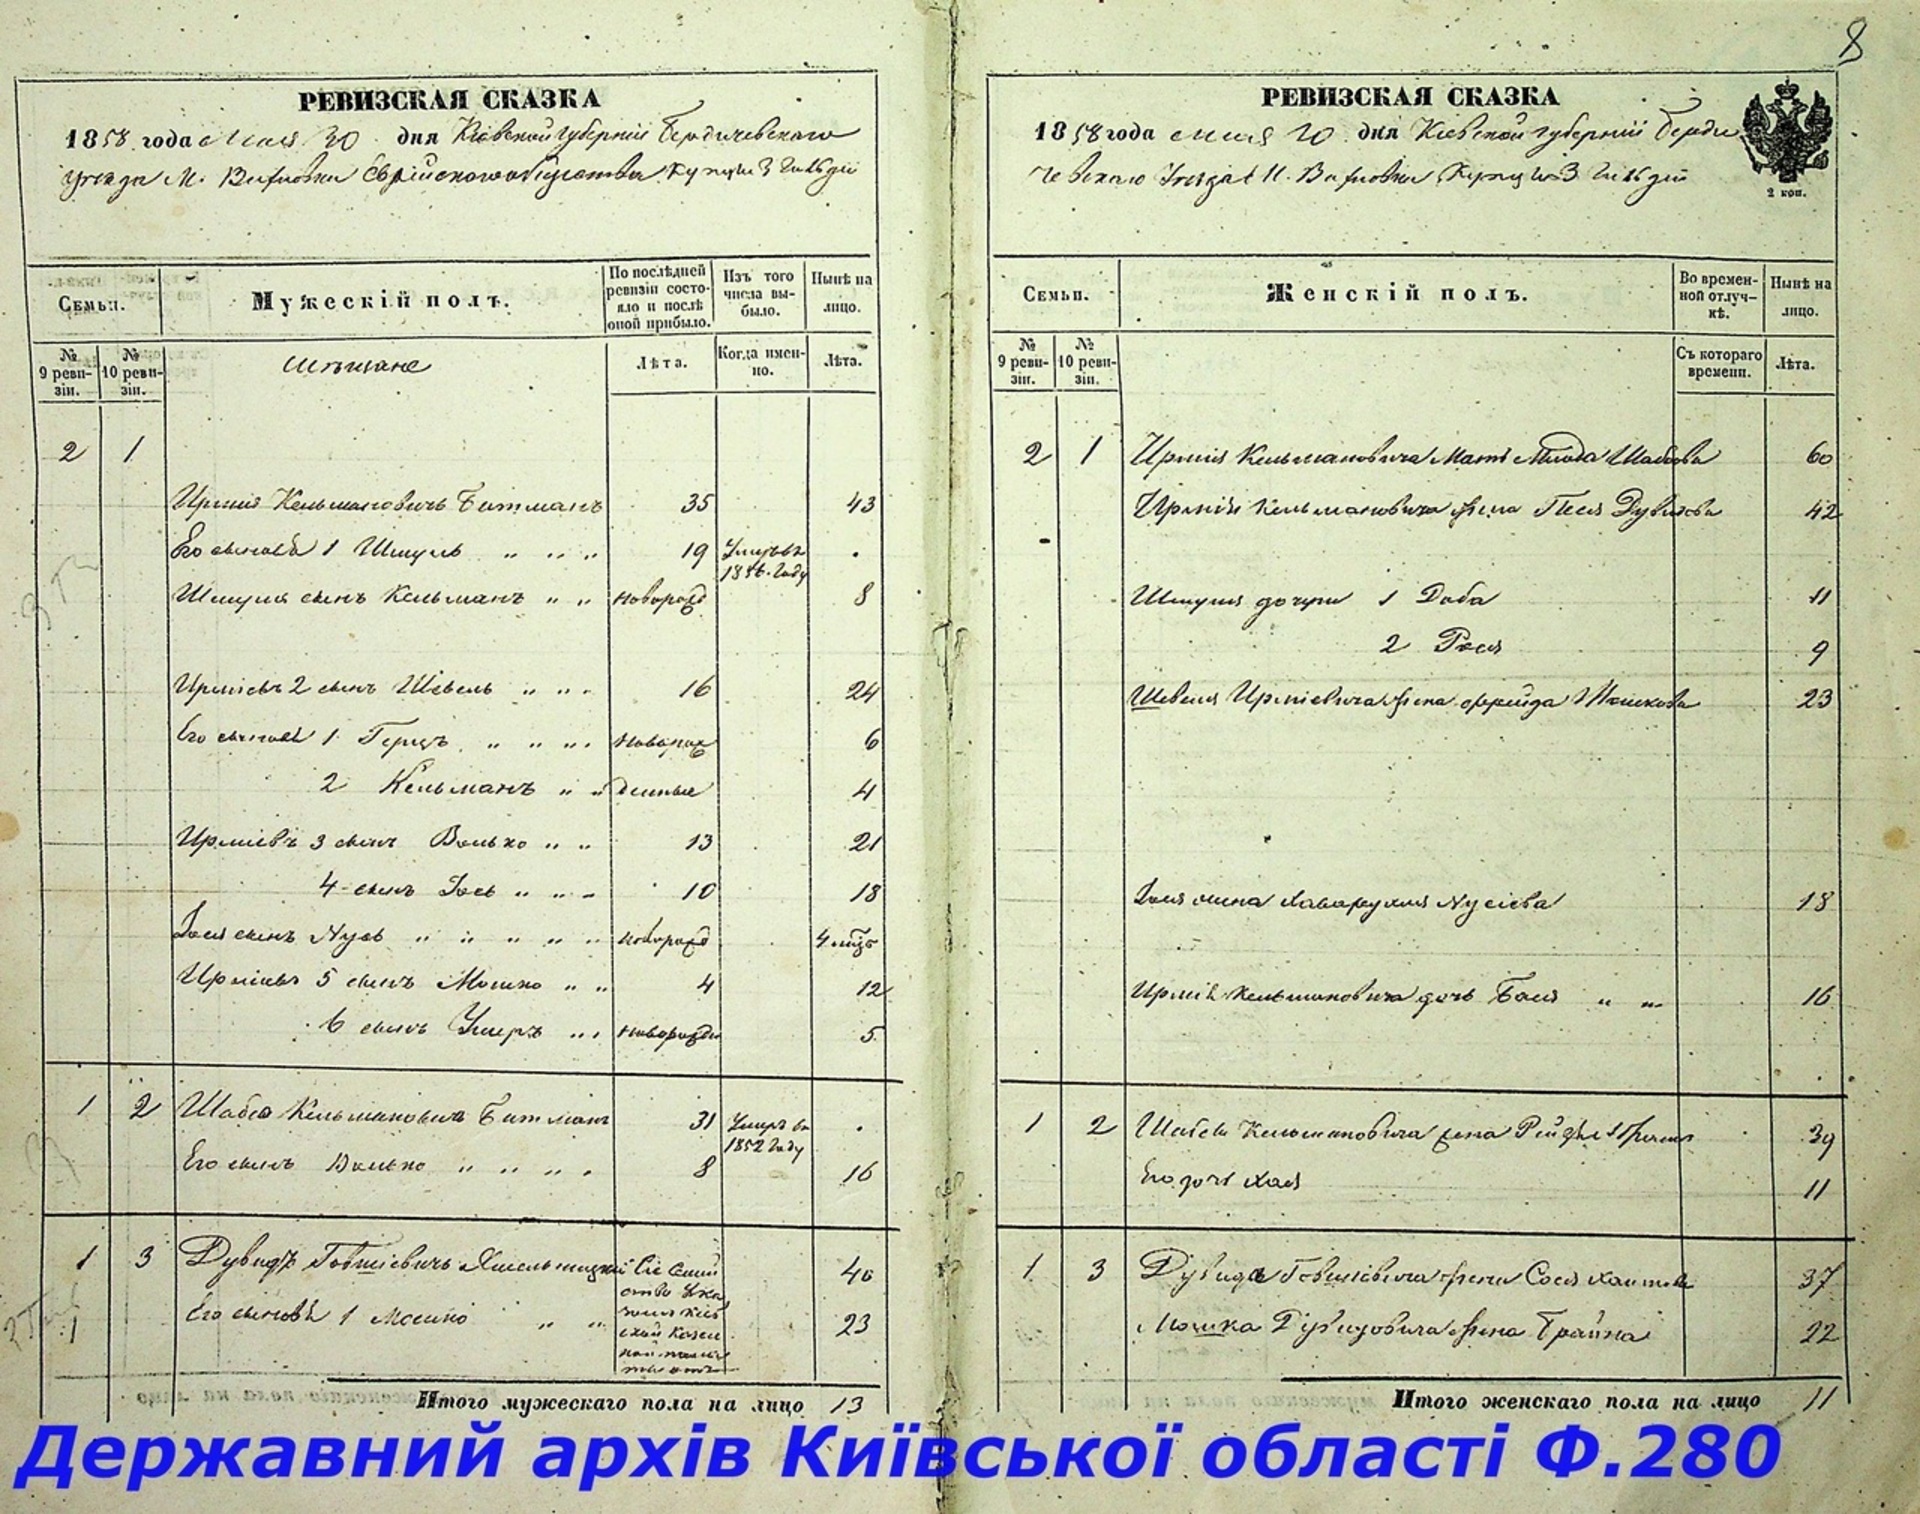 8
РЕВИЗСКАЯ СКАЗКА
1858 года Мая 30 дня Кіевской губерніи Бердичевскаго
уезда М. Вахновки Еврейского общества Купцы 3 гильдіи
Семьи.
Мужескій полъ.
По послѣдней ревизіи состояло и послѣ оной прибыло.
Изъ того числа выбыло.
Нынѣ на лицо.
№ 9 ревизіи.
№ 10 ревизіи.
Мѣщане
Лѣта.
Когда именно.
Лѣта.
2 1
Ирмія Кельмановичъ Битманъ 35 43
Его сыновья 1 Шмуль " " " 19 Умеръ въ 1856 году .
Шмуля сынъ Кельманъ " " новорожд 8
Ирміевъ 2 сынъ Шевель " " " 16 24
Его сыновья 1 Герцъ " " " новорож 6
2 Кельманъ " " денные 4
Ирміевъ 3 сынъ Волько " " 13 21
4 сынъ Іось " " " 10 18
Іося сынъ Нусь " " " " " новорожд 4 мѣс
Ирміевъ 5 сынъ Мошко " " 4 12
6 сынъ Умеръ " " новорожден 5
1 2 Шабса Кельмановичъ Битманъ 31 Умеръ въ 1852 году .
Его сынъ Волько " " " " " 8 16
1 3 Дувидъ Говшіевичъ Хмельницкій Сіе Семейство 40
Его сыновья 1 Мошко " " 23
Итого мужескаго пола на лицо 13
РЕВИЗСКАЯ СКАЗКА
1858 года мая 30 дня Кіевской губерніи Берди
чевскаго Уезда М. Вахновки Купцы 3 гильдіи
2 коп.
Семьи.
Женскій полъ.
Во временной отлучкѣ.
Нынѣ на лицо.
№ 9 ревизіи.
№ 10 ревизіи.
Съ котораго времени.
Лѣта.
2 1 Ирмія Кельмановича Мать Млода Шабсова 60
Ирмія Кельмановича жена Песя Дувидова 42
Шмуля дочери 1 Доба 11
2 Рося 9
Шевеля Ирміевича жена Фрейда Мошкова 23
Іося жена Нусіева 18
Ирмія Кельмановича дочь Бася " " 16
1 2 Шабсы Кельмановича жена 39
Его дочь Хая 11
1 3 Дувида Говшіевича жена Сося Хаимова 37
Мошка Дувидовича жена Брайна 22
Итого женскаго пола на лицо 11
Державний архів Київської області Ф.280